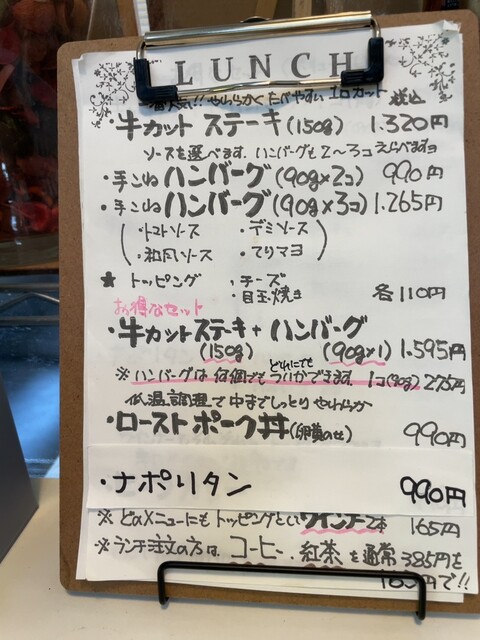 LUNCH
一番人気!! やわらかくたべやすい 1口カット 税込
・牛カット ステーキ(150g) 1.320円
ソースを選べます。ハンバーグも2〜3コえらべますヨ
・手こねハンバーグ(90g×2コ) 990円
・手こねハンバーグ(90g×3コ) 1.265円
・トマトソース ・デミソース
・和風ソース ・てりマヨ
★ トッピング ・チーズ
・目玉焼き 各110円
お得なセット
・牛カットステーキ+ハンバーグ
(150g) (90g×1) 1.595円
※ハンバーグは何個でもどれにでもついかできます 1コ(90g) 275円
低温調理で中までしっとりやわらか
・ローストポーク丼(卵黄のせ) 990円
・ナポリタン 990円
※どのメニューにもトッピングとしてウインナー2本 165円
※ランチ注文の方は、コーヒー、紅茶を通常385円を
165円で!!